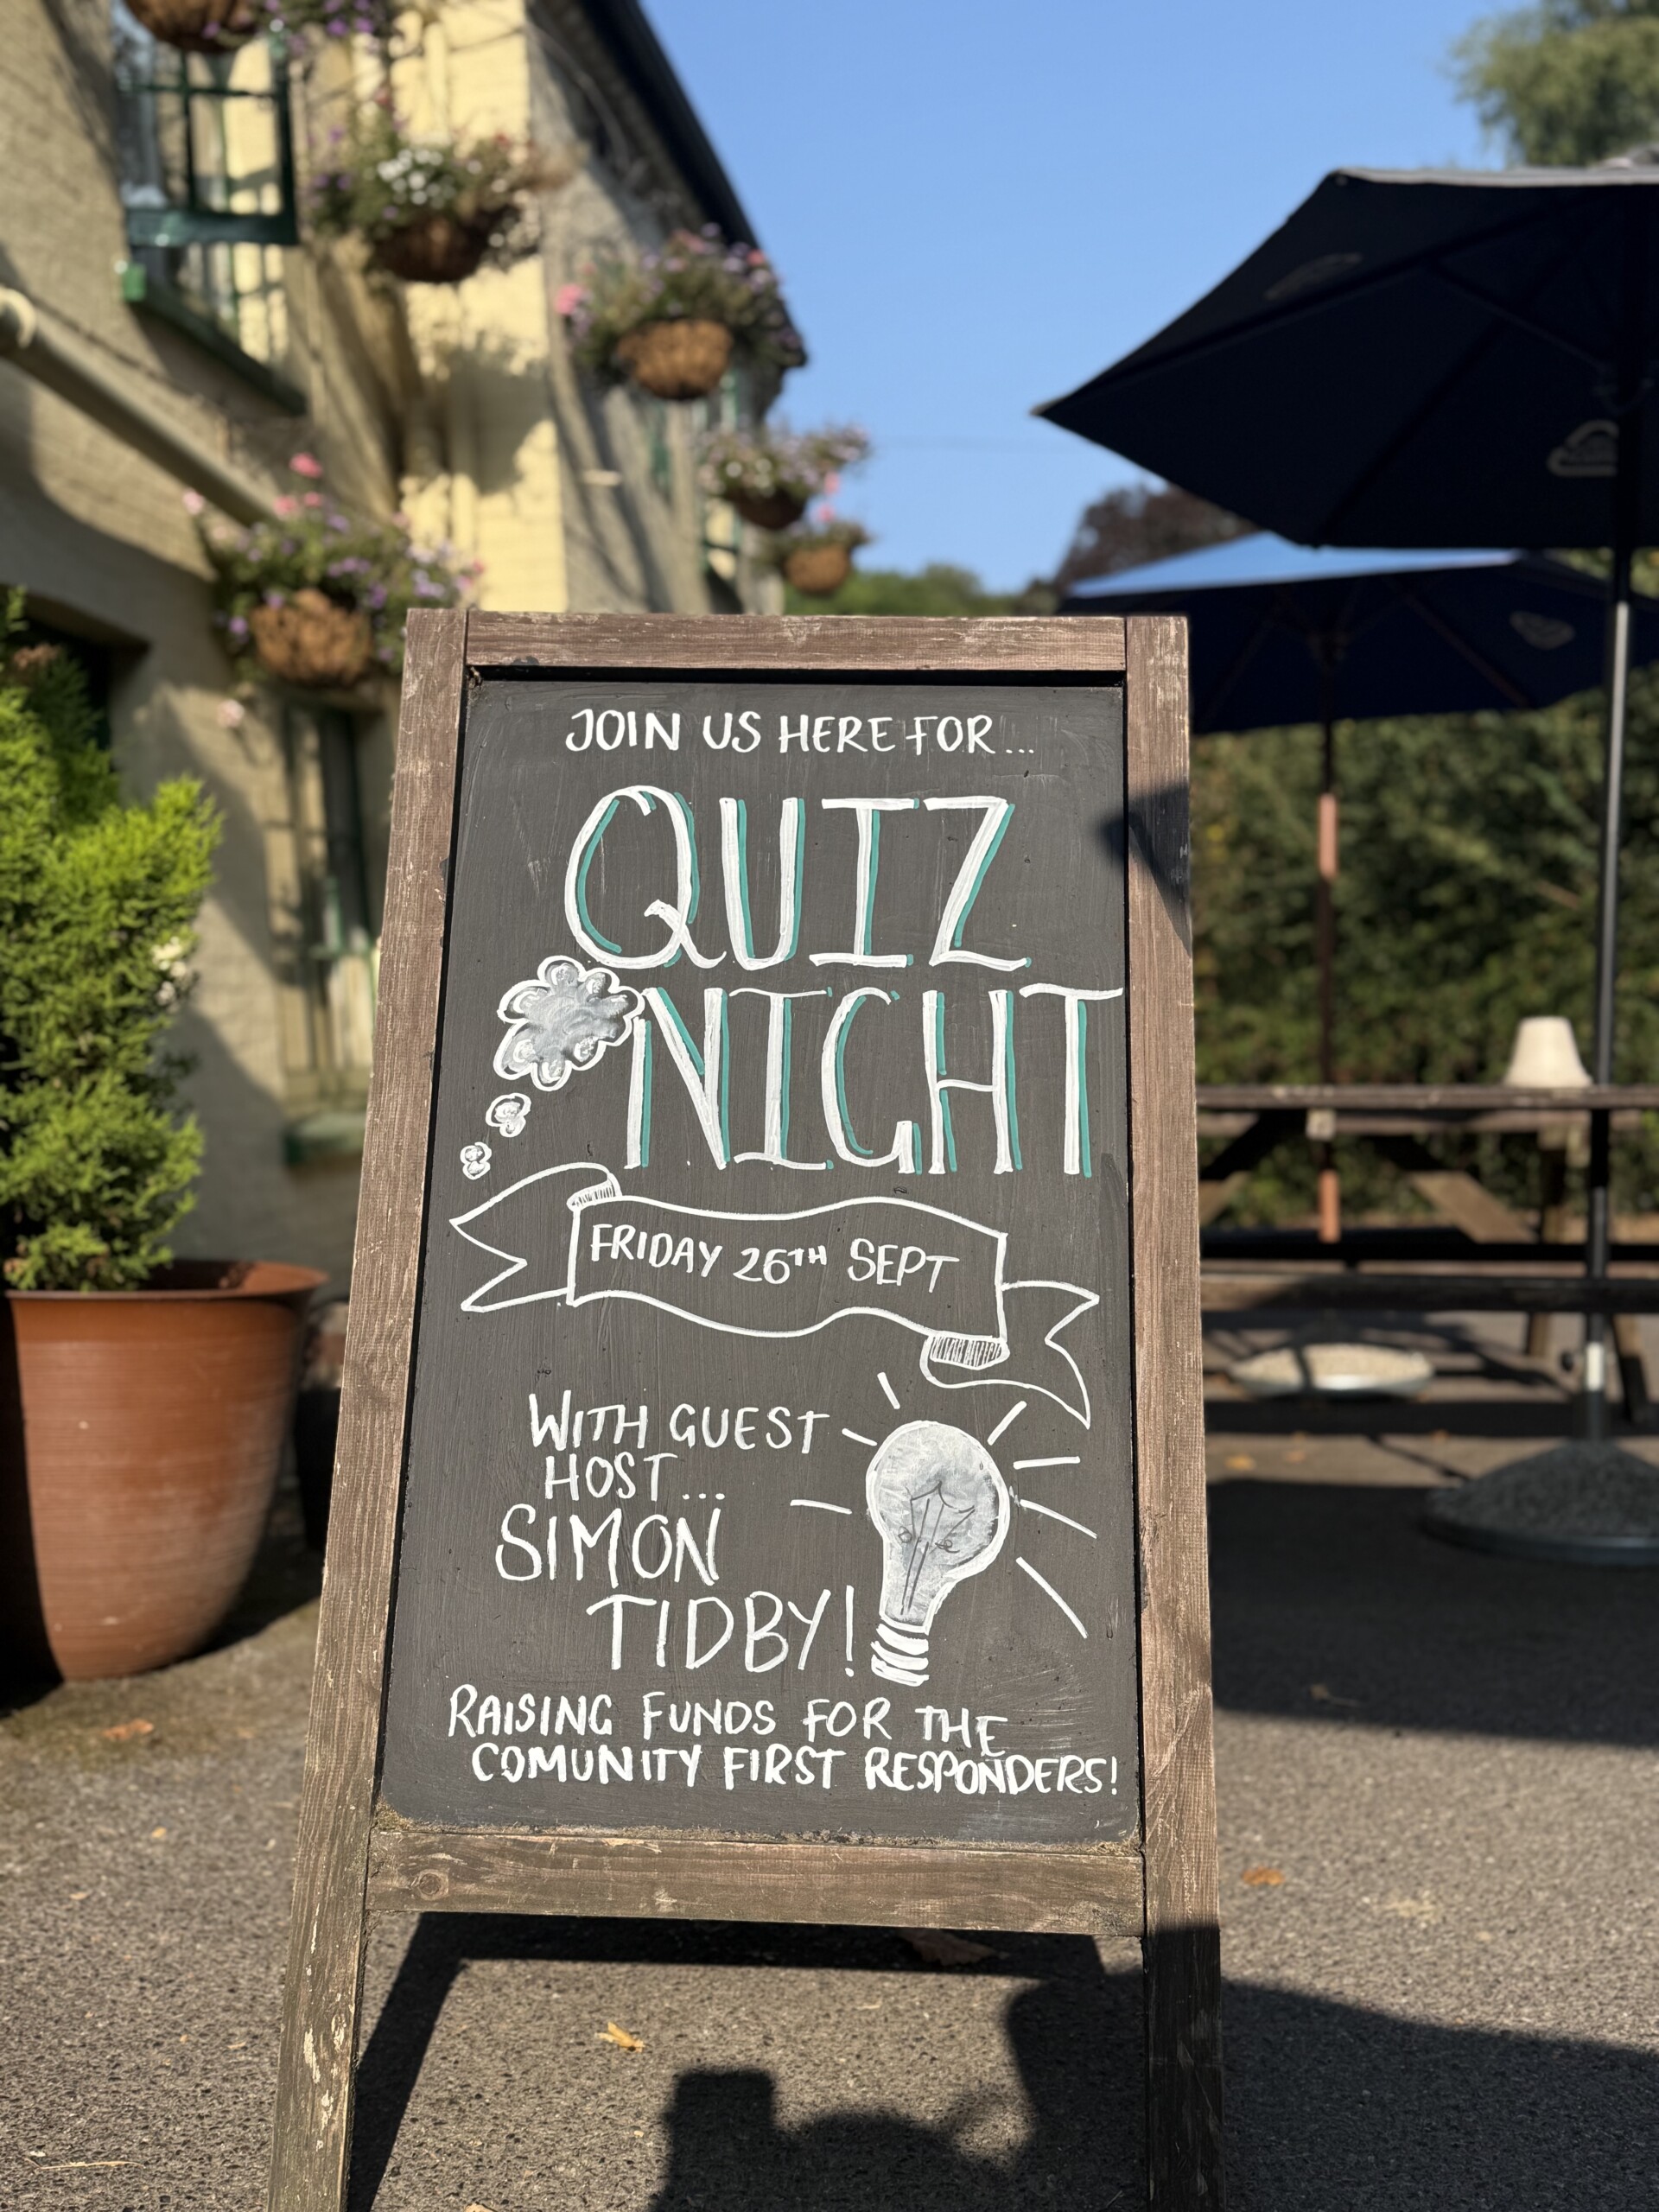 JOIN US HERE FOR...
QUIZ
NIGHT
FRIDAY 26TH SEPT
WITH GUEST
HOST...
SIMON
TIDBY!
RAISING FUNDS FOR THE
COMUNITY FIRST RESPONDERS!